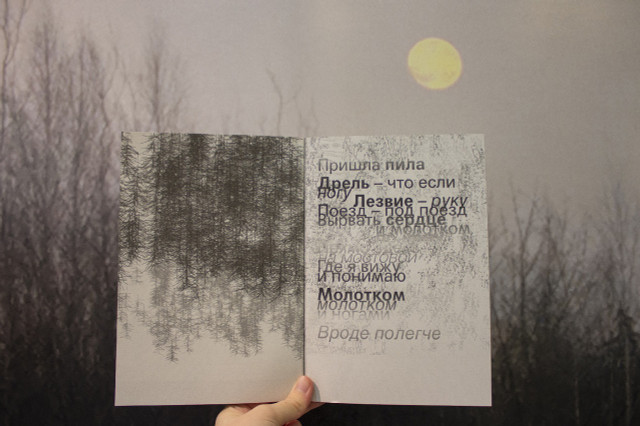 Пришла пила
Дрель – что если
ногу
Лезвие – руку
Поезд – под поезд
Вырвать сердце
и молотком
на мостовой
Где я вижу
и понимаю
Молотком
молотком
и ногами
Вроде полегче